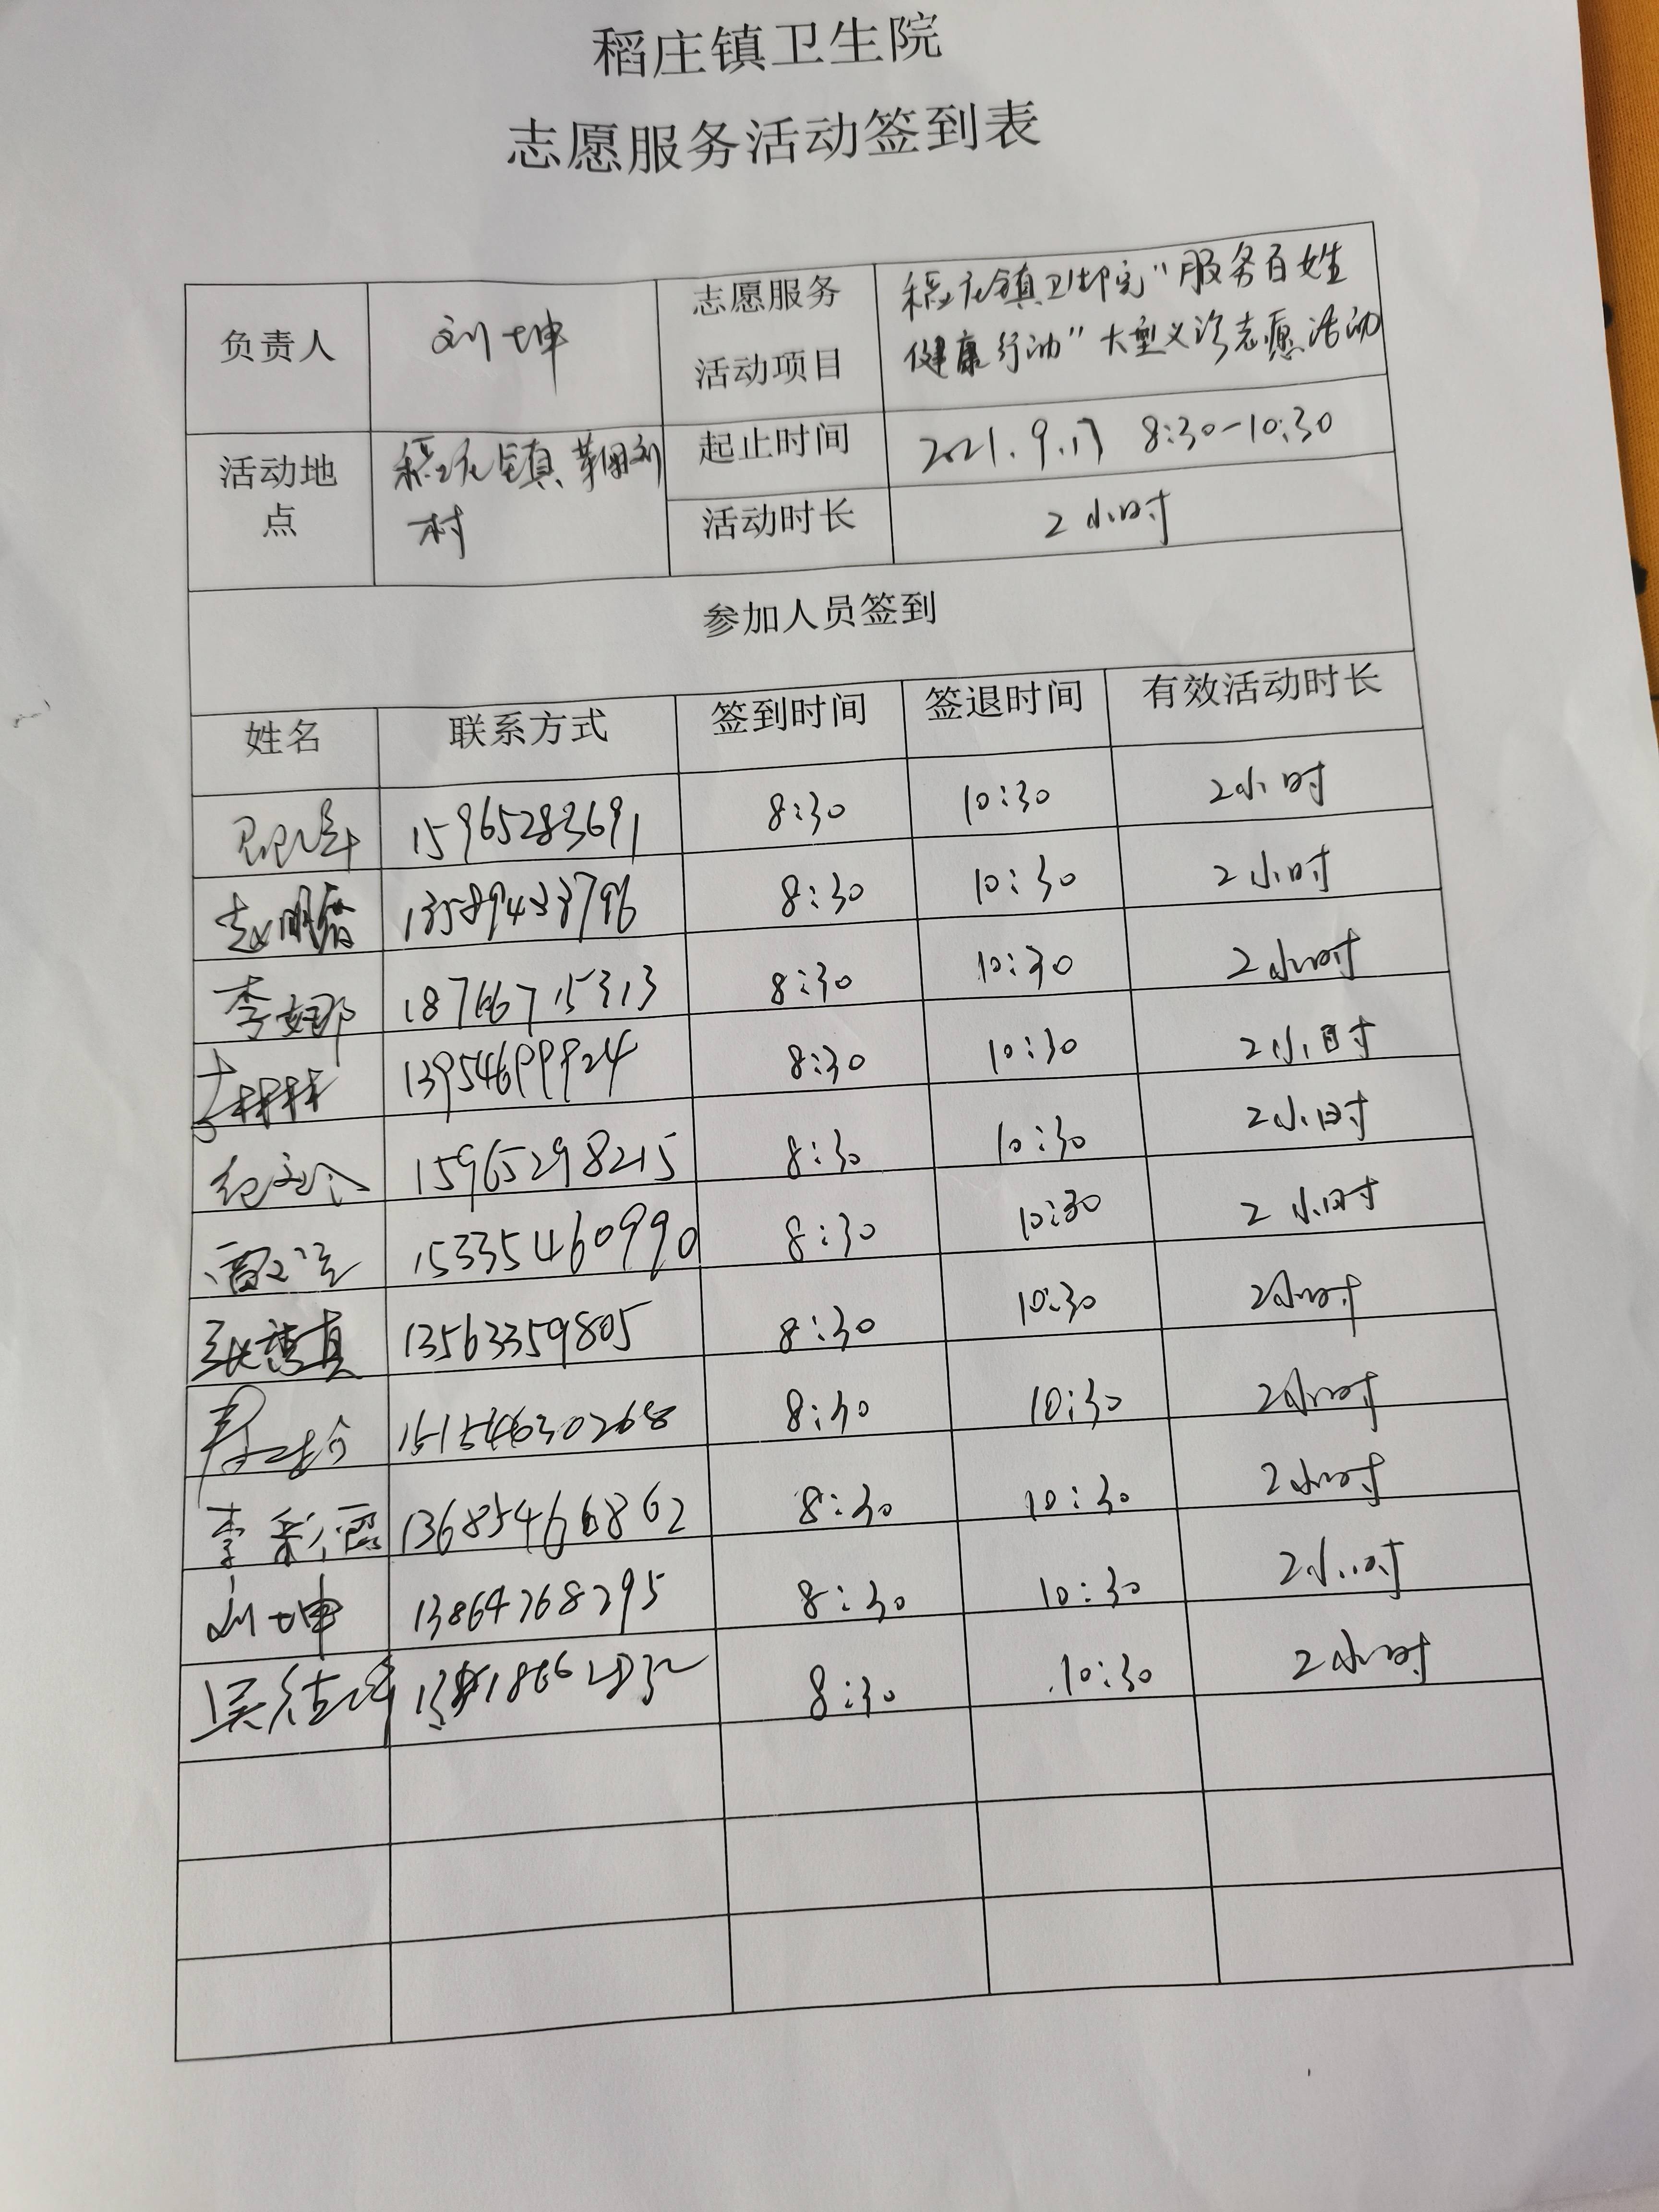 稻庄镇卫生院
志愿服务活动签到表
负责人 刘坤 志愿服务活动项目 稻庄镇卫生院"服务百姓
健康行动"大型义诊志愿活动
活动地点 稻庄镇 村 起止时间 2021.9.17 8:30-10:30
活动时长 2小时
参加人员签到
姓名 联系方式 签到时间 签退时间 有效活动时长
15965283691 8:30 10:30 2小时
赵明 13589433796 8:30 10:30 2小时
李娜 18766715313 8:30 10:30 2小时
13954699924 8:30 10:30 2小时
15965298215 8:30 10:30 2小时
15335460990 8:30 10:30 2小时
13563359805 8:30 10:30 2小时
15154630268 8:30 10:30 2小时
李彩霞 13685466862 8:30 10:30 2小时
刘坤 13864768295 8:30 10:30 2小时
吴 8:30 10:30 2小时